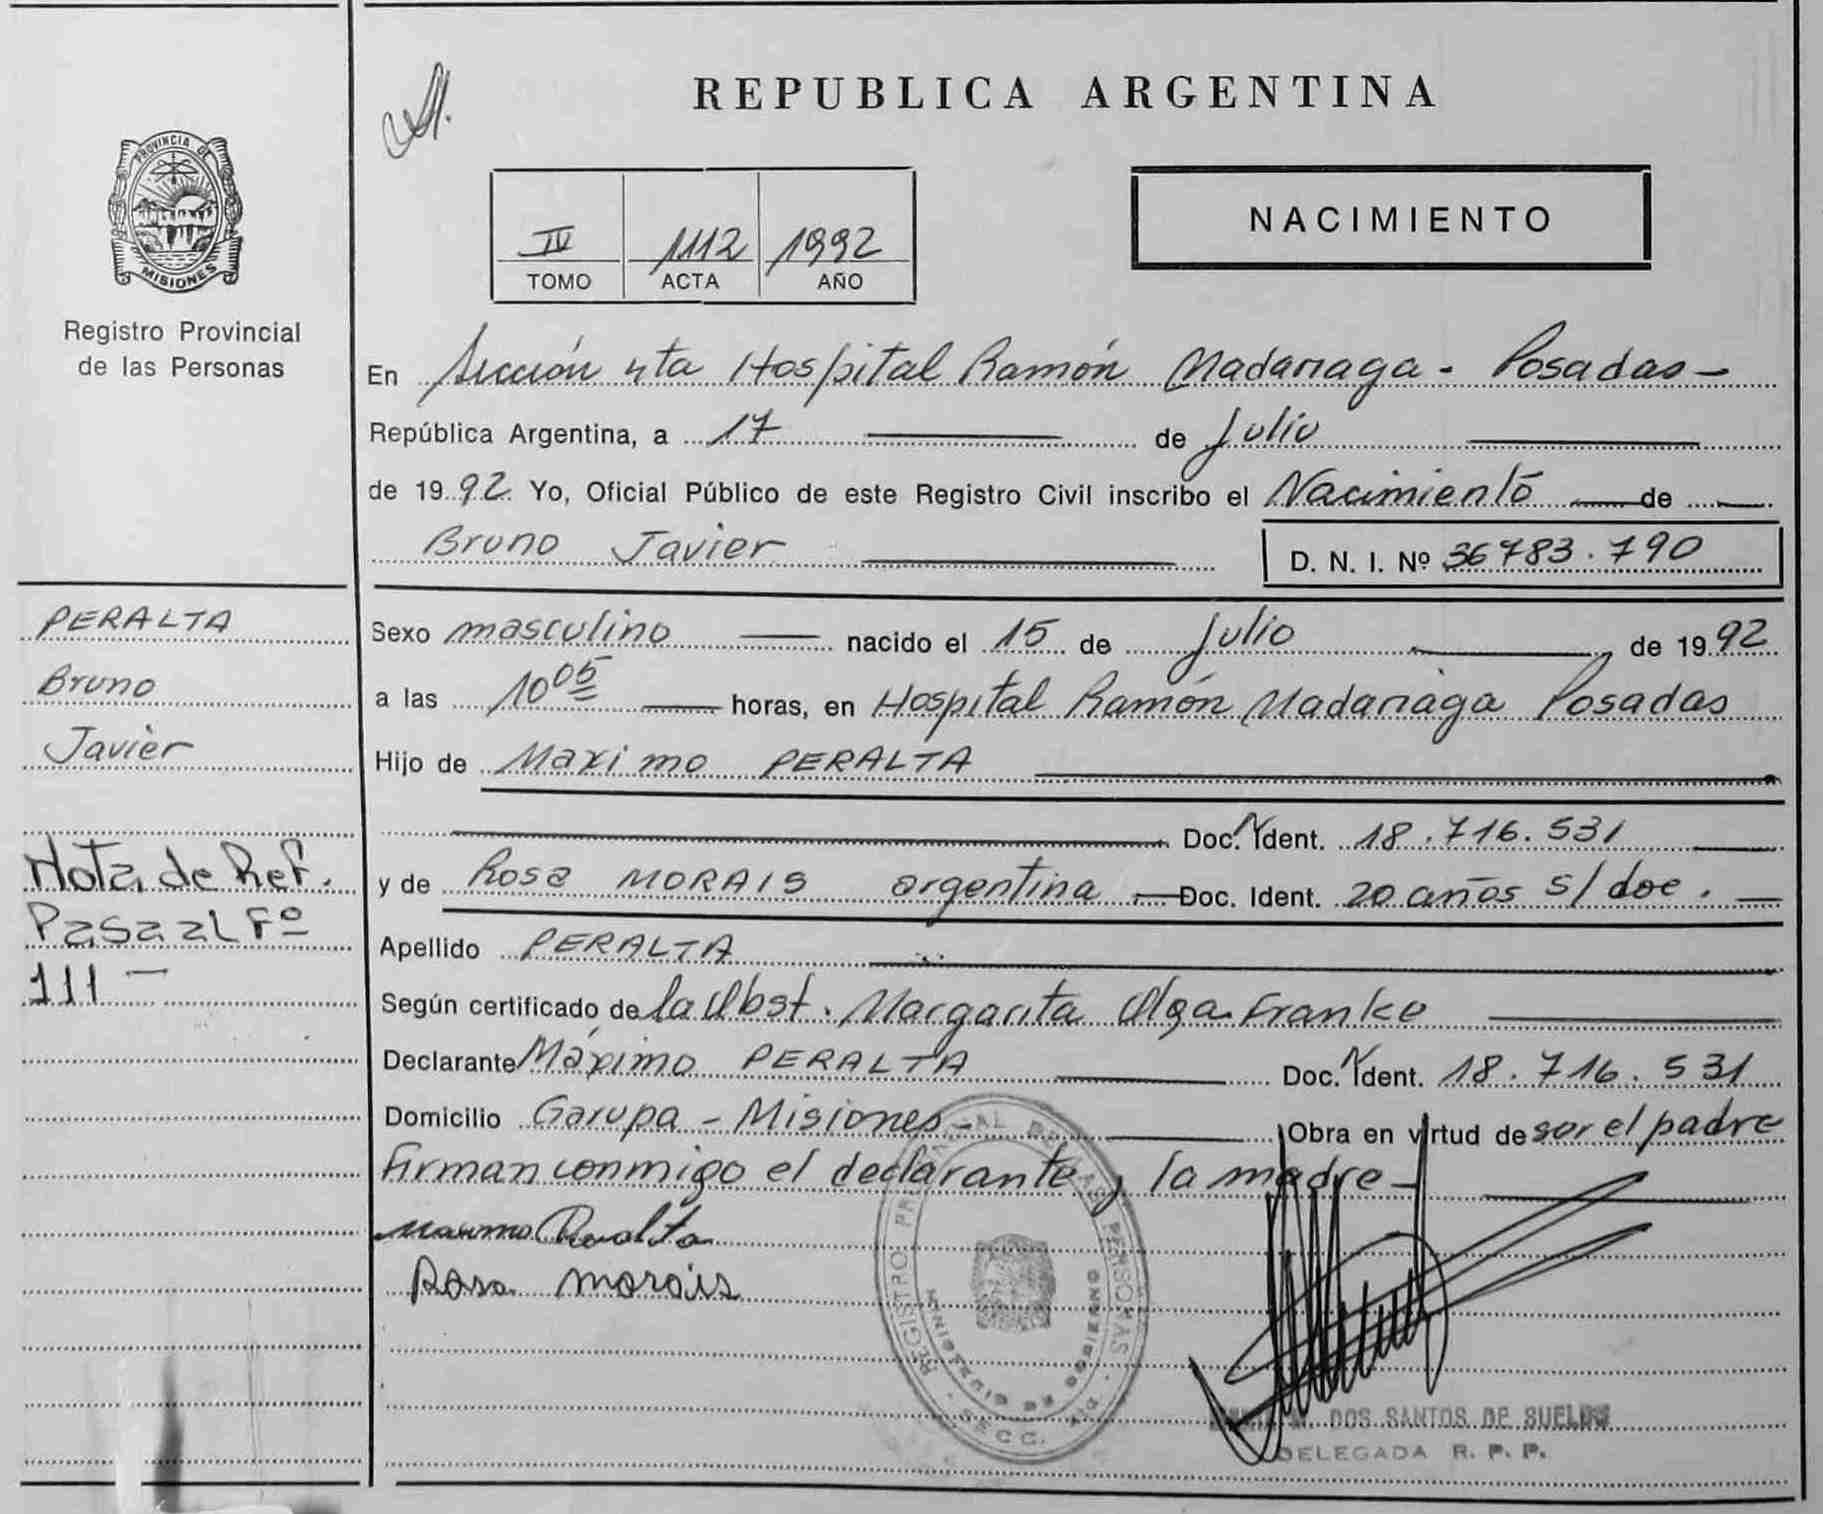 REPUBLICA ARGENTINA
PROVINCIA DE
MISIONES
Registro Provincial
de las Personas
NACIMIENTO
IV 1112 1992
TOMO ACTA AÑO
En Sección 4ta Hospital Ramón Madariaga - Posadas -
República Argentina, a 17 de Julio
de 1992 Yo, Oficial Público de este Registro Civil inscribo el Nacimiento de
Bruno Javier D. N. I. Nº 36783.790
PERALTA
Bruno
Javier
Nota de Ref.
Pasa al Fº
111 -
Sexo masculino nacido el 15 de Julio de 1992
a las 10 05 horas, en Hospital Ramón Madariaga Posadas
Hijo de Maximo PERALTA
Doc. Ident. 18.716.531
y de Rosa MORAIS argentina Doc. Ident. 20 años s/doc.
Apellido PERALTA
Según certificado de la Obst. Margarita Olga Franke
Declarante Máximo PERALTA Doc. Ident. 18.716.531
Domicilio Garupa - Misiones - Obra en virtud de ser el padre
Firman conmigo el declarante y la madre -
Maximo Peralta
Rosa morais
REGISTRO PROVINCIAL DE LAS PERSONAS
MINISTERIO DE GOBIERNO
SECC. 4ta
DOS SANTOS DE
DELEGADA R. P. P.